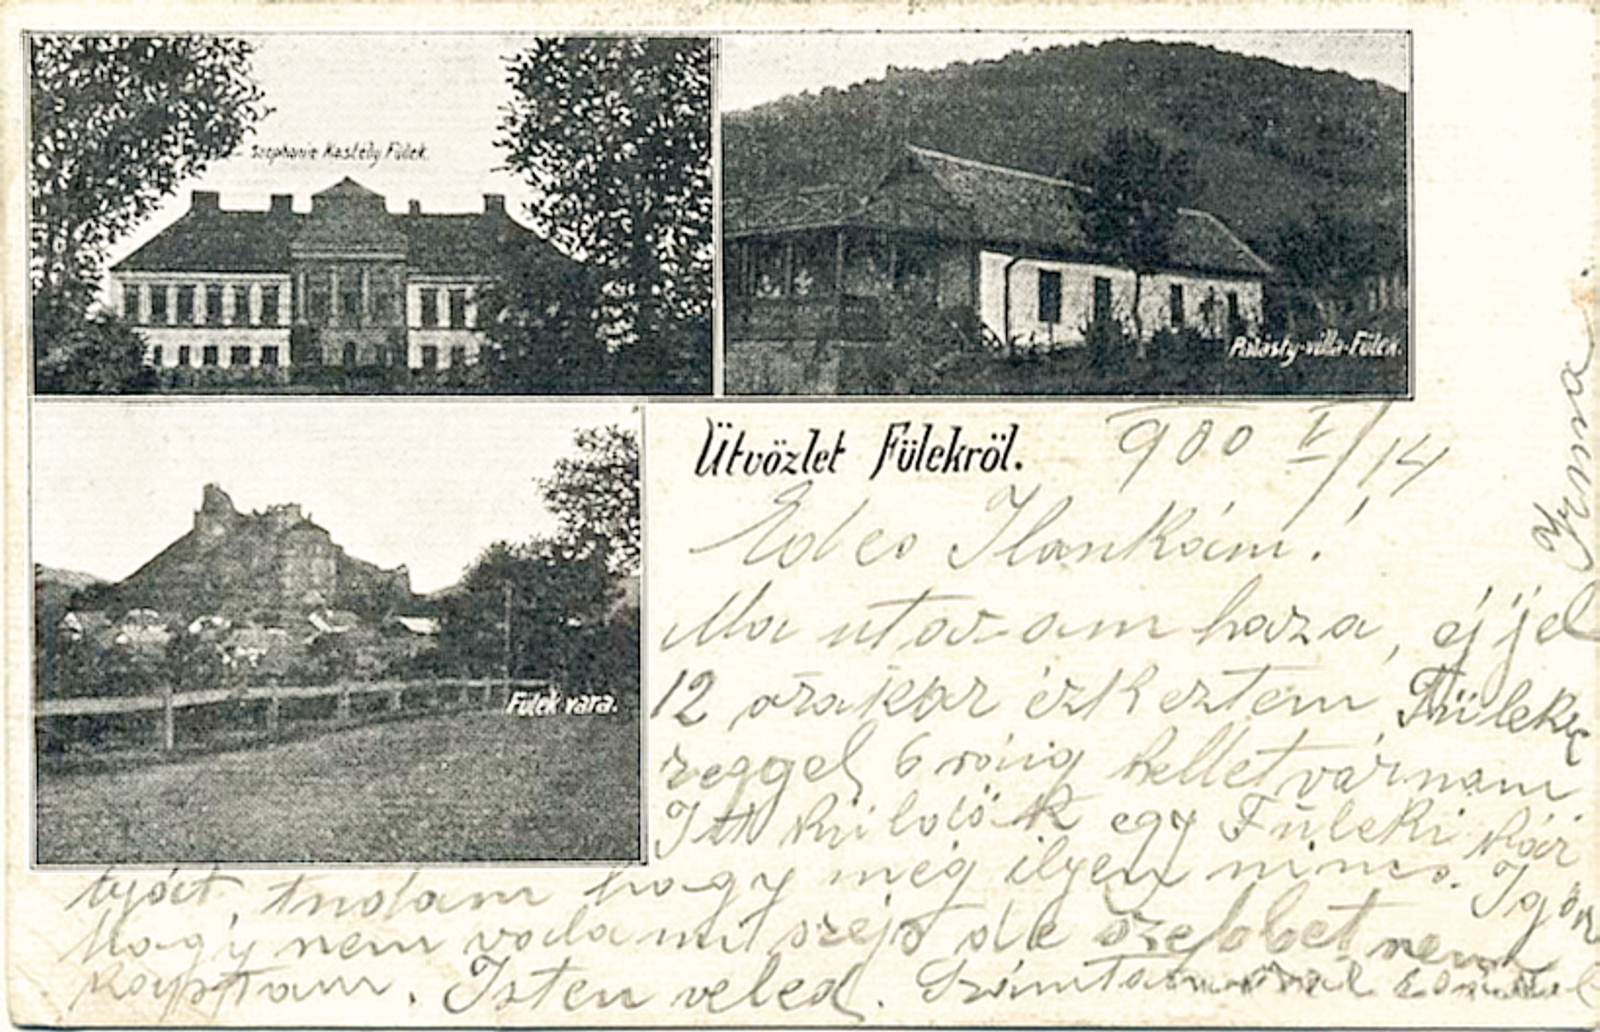 Stephanie Kastély Fülek.
Palásty-villa-Fülek.
Fülek vára.
Üdvözlet Fülekről.
900 V/14
Edes Ilonkám!
Ma utazam haza, éjjel
12 orakkor érkeztem Fülekre
reggel 6 ráig kellet várnam
Itt küldök egy Füleki kár
tyát, tudam hogy még ilyen nincs. Igaz
hogy nem valami szép de szebbet nem
kaptam. Isten veled.
Irma